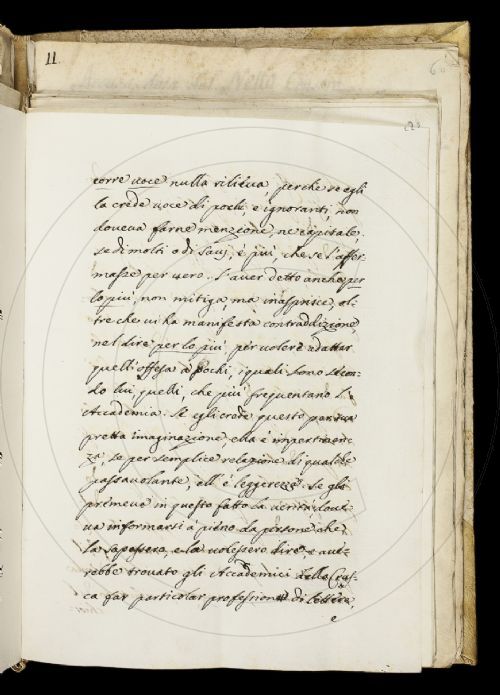 11.
corre voce nulla rilieva, perche se egli
la crede voce di pochi, e ignoranti, non
doveva farne menzione, ne capitale;
se di molti o di Savj, è più, che se l'affer-
masse per vero. l'aver detto anche per
lo più, non mitiga, ma inasprisce, ol-
tre che vi ha manifesta contraddizione,
nel dire per lo più per volere adattar
quell'offesa a pochi, i quali sono secon-
do lui quelli, che più frequentano l'
Accademia. Se egli crede questo per sua
pretta imaginazione, ella è impertinen-
za, se per semplice relazione di qualche
passavolante, ell'è leggerezza. Se gli
premeva in questo fatto la verità, dove-
va informarsi a pieno da persone che
la sapessero, e la volessero dire, e avt-
rebbe trovato gli Accademici della Crus-
ca far particolar professione di lettere,
e